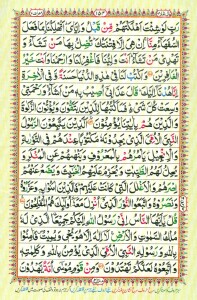 رَبِّ لَوْ شِئْتَ اَهْلَكْتَهُمْ مِّنْ قَبْلُ وَاِيَّايَ اَتُهْلِكُنَا بِمَا فَعَلَ
السُّفَهَآءُ مِنَّا اِنْ هِيَ اِلَّا فِتْنَتُكَ تُضِلُّ بِهَا مَنْ تَشَآءُ وَ
تَهْدِيْ مَنْ تَشَآءُ اَنْتَ وَلِيُّنَا فَاغْفِرْ لَنَا وَارْحَمْنَا وَاَنْتَ خَيْرُ
الْغٰفِرِيْنَ وَاكْتُبْ لَنَا فِيْ هٰذِهِ الدُّنْيَا حَسَنَةً وَّفِي الْاٰخِرَةِ
اِنَّا هُدْنَآ اِلَيْكَ قَالَ عَذَابِيْٓ اُصِيْبُ بِهٖ مَنْ اَشَآءُ وَرَحْمَتِيْ
وَسِعَتْ كُلَّ شَيْءٍ فَسَاَكْتُبُهَا لِلَّذِيْنَ يَتَّقُوْنَ وَيُؤْتُوْنَ
الزَّكٰوةَ وَالَّذِيْنَ هُمْ بِاٰيٰتِنَا يُؤْمِنُوْنَ اَلَّذِيْنَ يَتَّبِعُوْنَ الرَّسُوْلَ
النَّبِيَّ الْاُمِّيَّ الَّذِيْ يَجِدُوْنَهٗ مَكْتُوْبًا عِنْدَهُمْ فِي التَّوْرٰىةِ
وَالْاِنْجِيْلِ يَاْمُرُهُمْ بِالْمَعْرُوْفِ وَيَنْهٰىهُمْ عَنِ الْمُنْكَرِ وَ
يُحِلُّ لَهُمُ الطَّيِّبٰتِ وَيُحَرِّمُ عَلَيْهِمُ الْخَبٰٓئِثَ وَيَضَعُ عَنْهُمْ
اِصْرَهُمْ وَالْاَغْلٰلَ الَّتِيْ كَانَتْ عَلَيْهِمْ فَالَّذِيْنَ اٰمَنُوْا بِهٖ وَعَزَّرُوْهُ
وَنَصَرُوْهُ وَاتَّبَعُوا النُّوْرَ الَّذِيْٓ اُنْزِلَ مَعَهٗٓ اُولٰٓئِكَ هُمُ الْمُفْلِحُوْنَ
قُلْ يٰٓاَيُّهَا النَّاسُ اِنِّيْ رَسُوْلُ اللّٰهِ اِلَيْكُمْ جَمِيْعًا الَّذِيْ لَهٗ
مُلْكُ السَّمٰوٰتِ وَالْاَرْضِ لَآ اِلٰهَ اِلَّا هُوَ يُحْيٖ وَيُمِيْتُ فَاٰمِنُوْا
بِاللّٰهِ وَرَسُوْلِهِ النَّبِيِّ الْاُمِّيِّ الَّذِيْ يُؤْمِنُ بِاللّٰهِ وَكَلِمٰتِهٖ
وَاتَّبِعُوْهُ لَعَلَّكُمْ تَهْتَدُوْنَ وَمِنْ قَوْمِ مُوْسٰٓى اُمَّةٌ يَّهْدُوْنَ